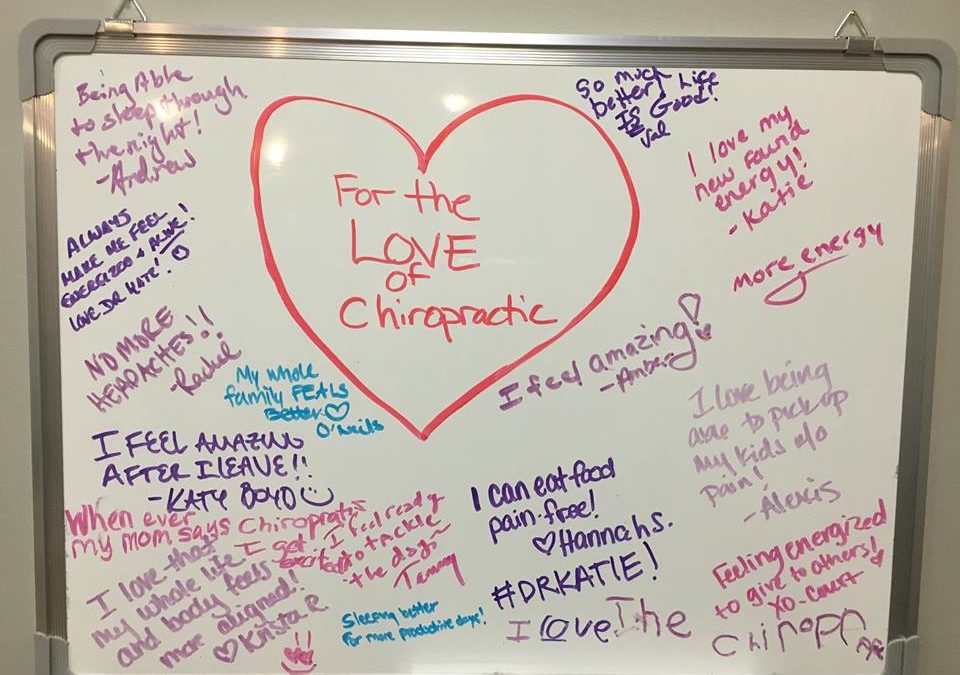 For the
LOVE
OF
Chiropractic
Being Able
to sleep through
the night!
-Andrew
So much
better! Life
Is Good!
Val
I love my
new found
energy!
-Katie
ALWAYS
MAKE ME FEEL
ENERGIZED & ALIVE!
LOVE DR KATE!
more energy
NO MORE
HEADACHES!!
-Rachel
My whole
family FEALS
Better
O'Neils
I feel amazing!
-Amber
I love being
able to pick up
my kids w/o
pain!
-Alexis
I FEEL AMAZING
AFTER I LEAVE!!
-KATY BOYD
I can eat food
pain-free!
Hannah S.
When ever
my mom says Chiropratis
I get
excited
I feel ready
to tackle
the day!
Tammy
#DRKATIE!
Feeling energized
to give to others!
XO-Court
I love that
my whole life
and body feels
more aligned!
Krista R
Sleeping better
for more productive days!
I Love The
Chiropr